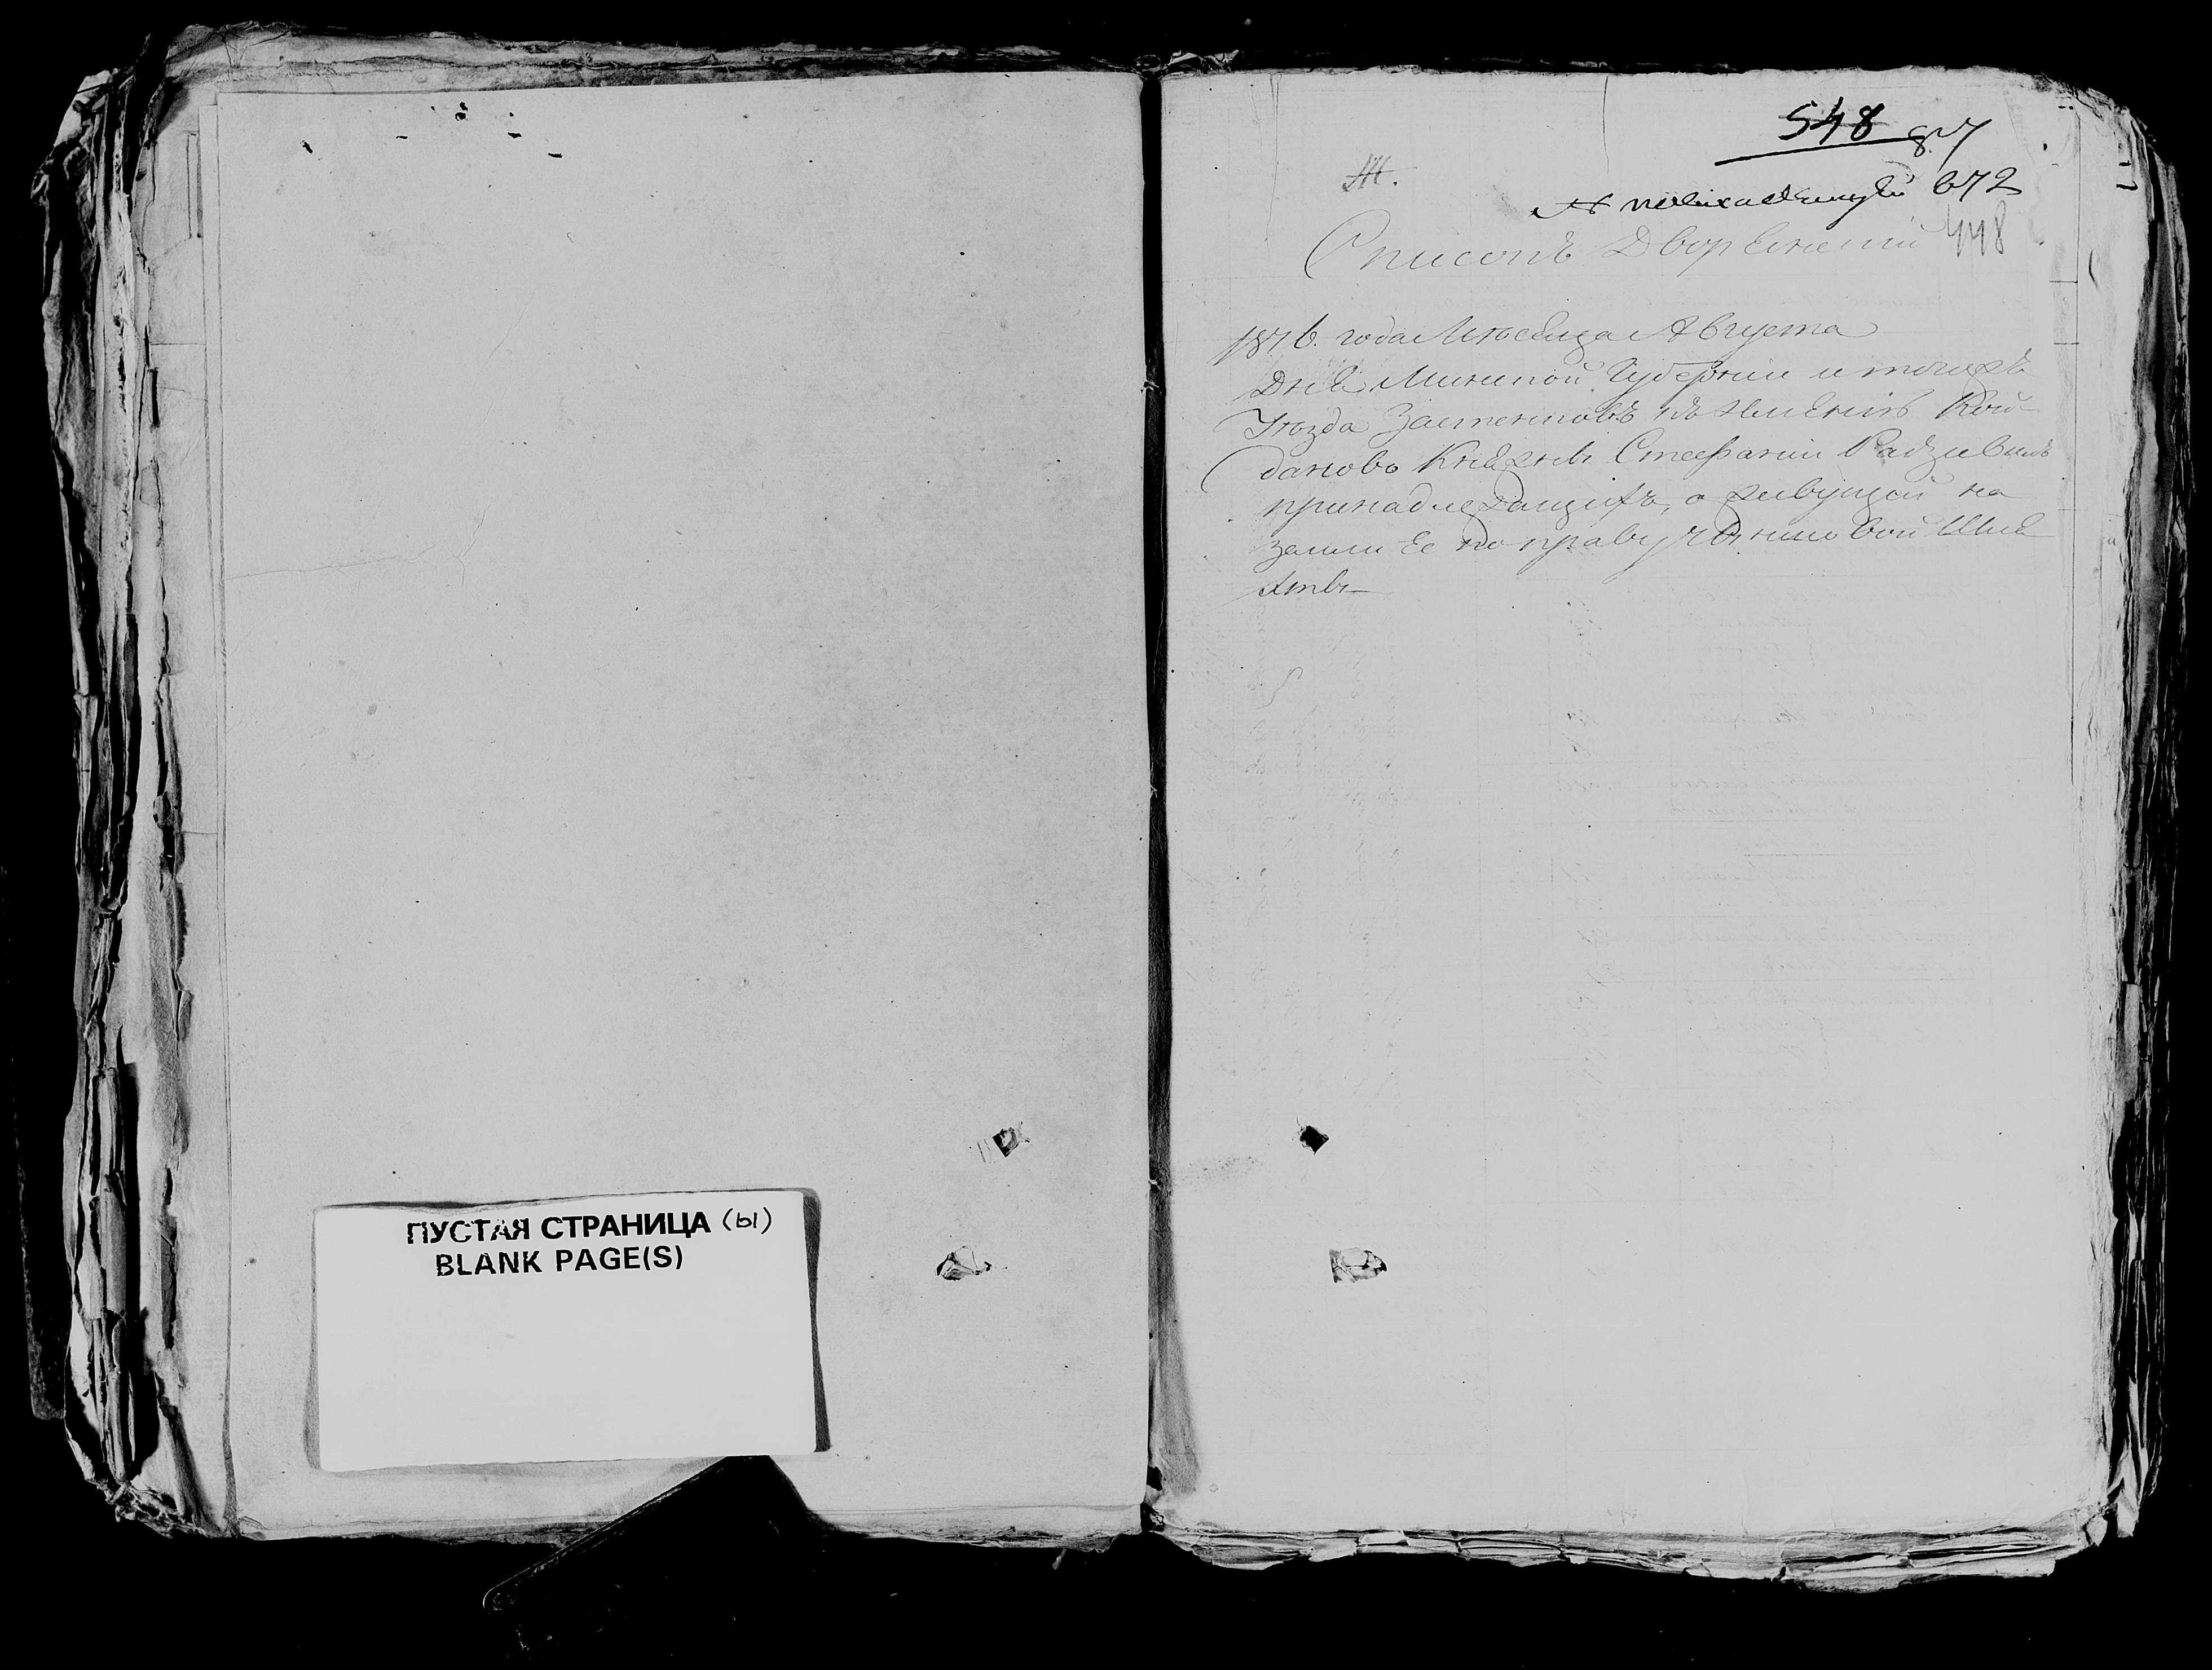 ПУСТАЯ СТРАНИЦА (ы)
BLANK PAGE(S)
548 87
Ж.
672
Списокъ Дворянскій 448
года Мѣсяца Августа
Дня Минской Губерніи и тогожъ
Уѣзда Застенковъ къ Имѣнію Кой-
даново Княжны Стефаніи Радзивилъ
принадлежащихъ, о живущей на
земли Ее по праву чиншовой Шля
хты